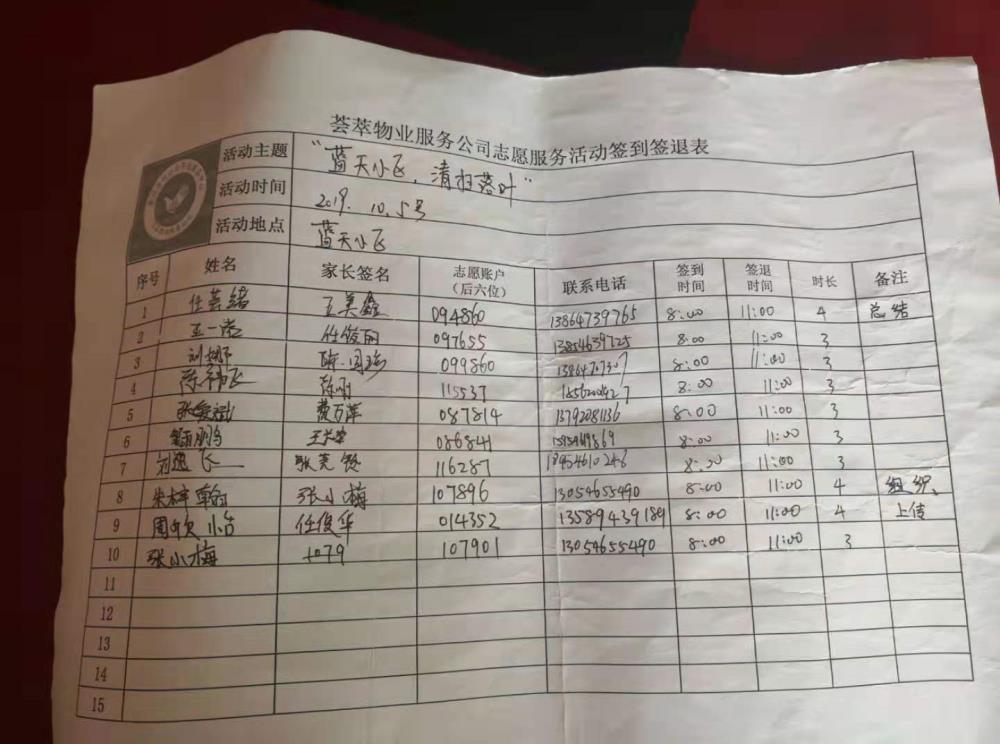 荟萃物业服务公司志愿服务活动签到签退表
活动主题 "蓝天小飞,清扫落叶"
活动时间 2019.10.5号
活动地点 蓝天小飞
序号 姓名 家长签名 志愿账户(后六位) 联系电话 签到时间 签退时间 时长 备注
1 任芸绪 王美鑫 094860 13864739765 8:00 11:00 4 总结
2 王一诺 任俊丽 097655 13854639725 8:00 11:00 3
3 刘 099860 8:00 11:00 3
4 飞 陈刚 115537 8:00 11:00 3
5 张爱斌 黄万萍 087814 13792081136 8:00 11:00 3
6 鹏 王 086841 8:00 11:00 3
7 刘逸飞 张 116287 18954610246 8:30 11:00 3
8 朱梓 张小梅 107896 13054655490 8:00 11:00 4 组织、
9 周 任俊华 014352 13589439189 8:00 11:00 4 上传
10 张小梅 1079 107901 13054655490 8:00 11:00 3
11
12
13
14
15